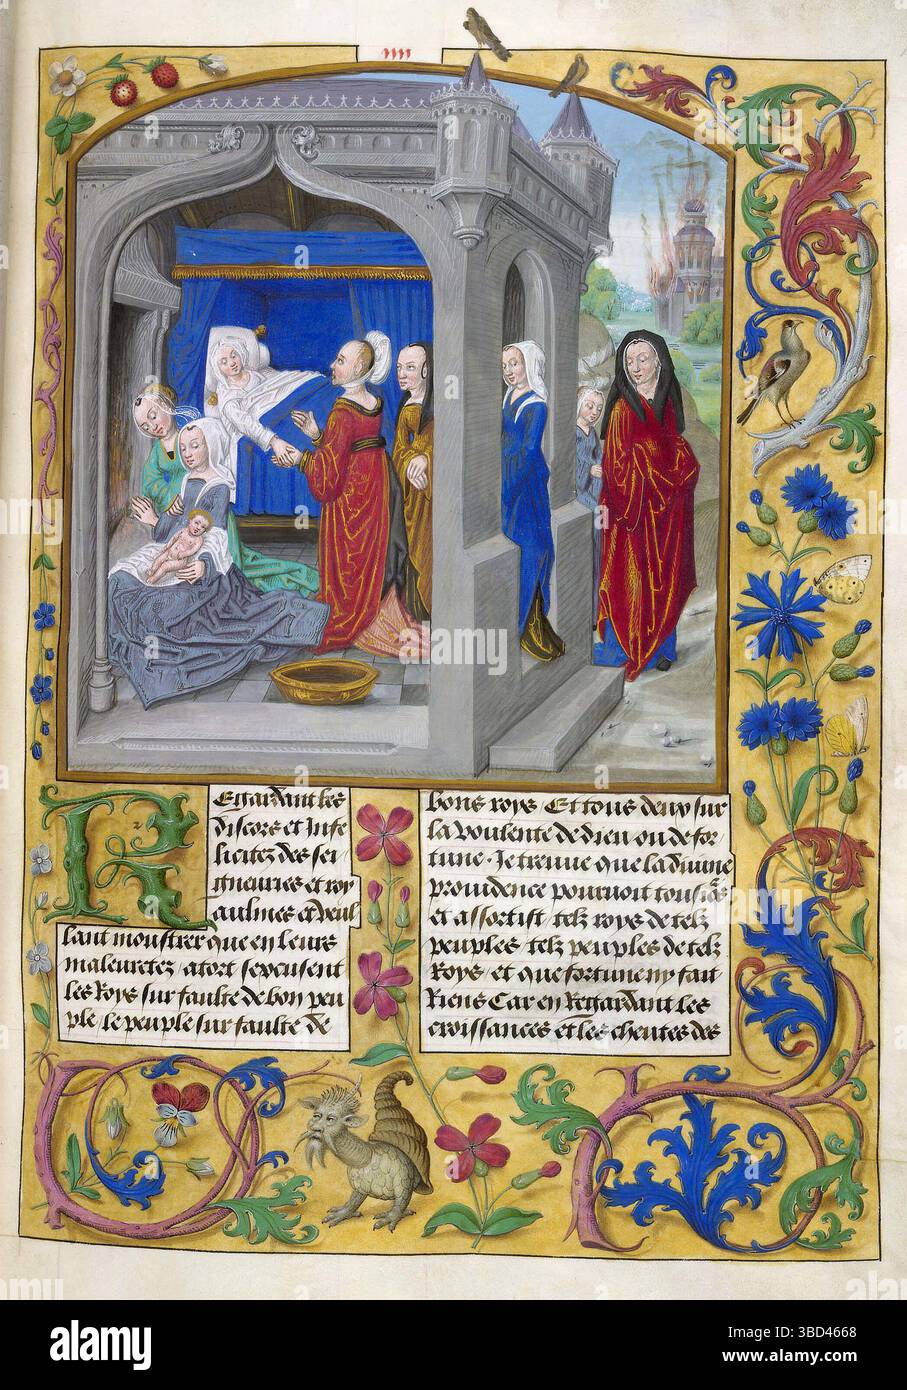 iiii
Regardant les
discors et Infe
licitez des sei-
gneuries et roy
aulmes et veul
lant moustrer que en leurs
maleuretez / a tort sexcusent
les Roys sur faulte de bon peu
ple / le peuple sur faulte de
bons roys / Et tous deux sur
la voulente de dieu ou de for
tune. Je treuue que la diuine
prouidence pouruoit tousiours
et assortist telz roys de telz
peuples / telz peuples de telz
Roys / et que fortune ny fait
Riens Car en Regardant les
croissances et les cheutes des
alamy
Image ID: 3BD4668
www.alamy.com